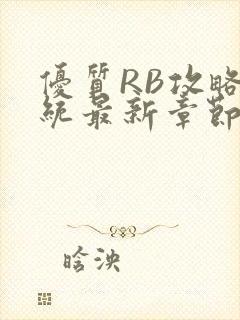 優質RB攻略
統最新章節
晗泱